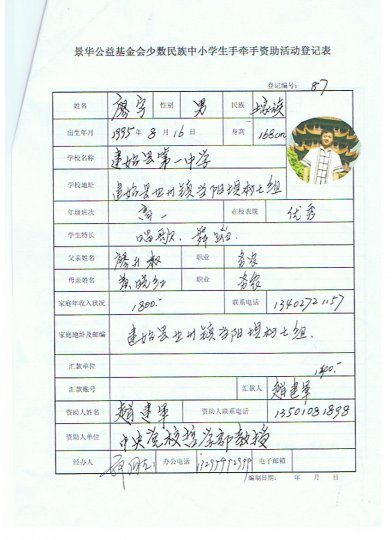 景华公益基金会少数民族中小学生手牵手资助活动登记表
登记编号： 87
姓名 廖宇 性别 男 民族 土家族
出生年月 1995年8月16日 身高 168cm
学校名称 建始县第一中学
学校地址 建始县业州镇当阳坝村七组
年级班次 高一 在校表现 优秀
学生特长 唱歌、舞蹈
父亲姓名 职业 务农
母亲姓名 职业 务农
家庭年收入状况 1800.- 联系电话
家庭地址及邮编 建始县业州镇当阳坝村七组.
汇款单位
汇款账号 汇款人 赵建军
资助人姓名 赵建军 资助人联系电话 13501081898
资助人单位 中央党校哲学部教授
经办人 办公电话 电子邮箱
编制日期： 年 月 日